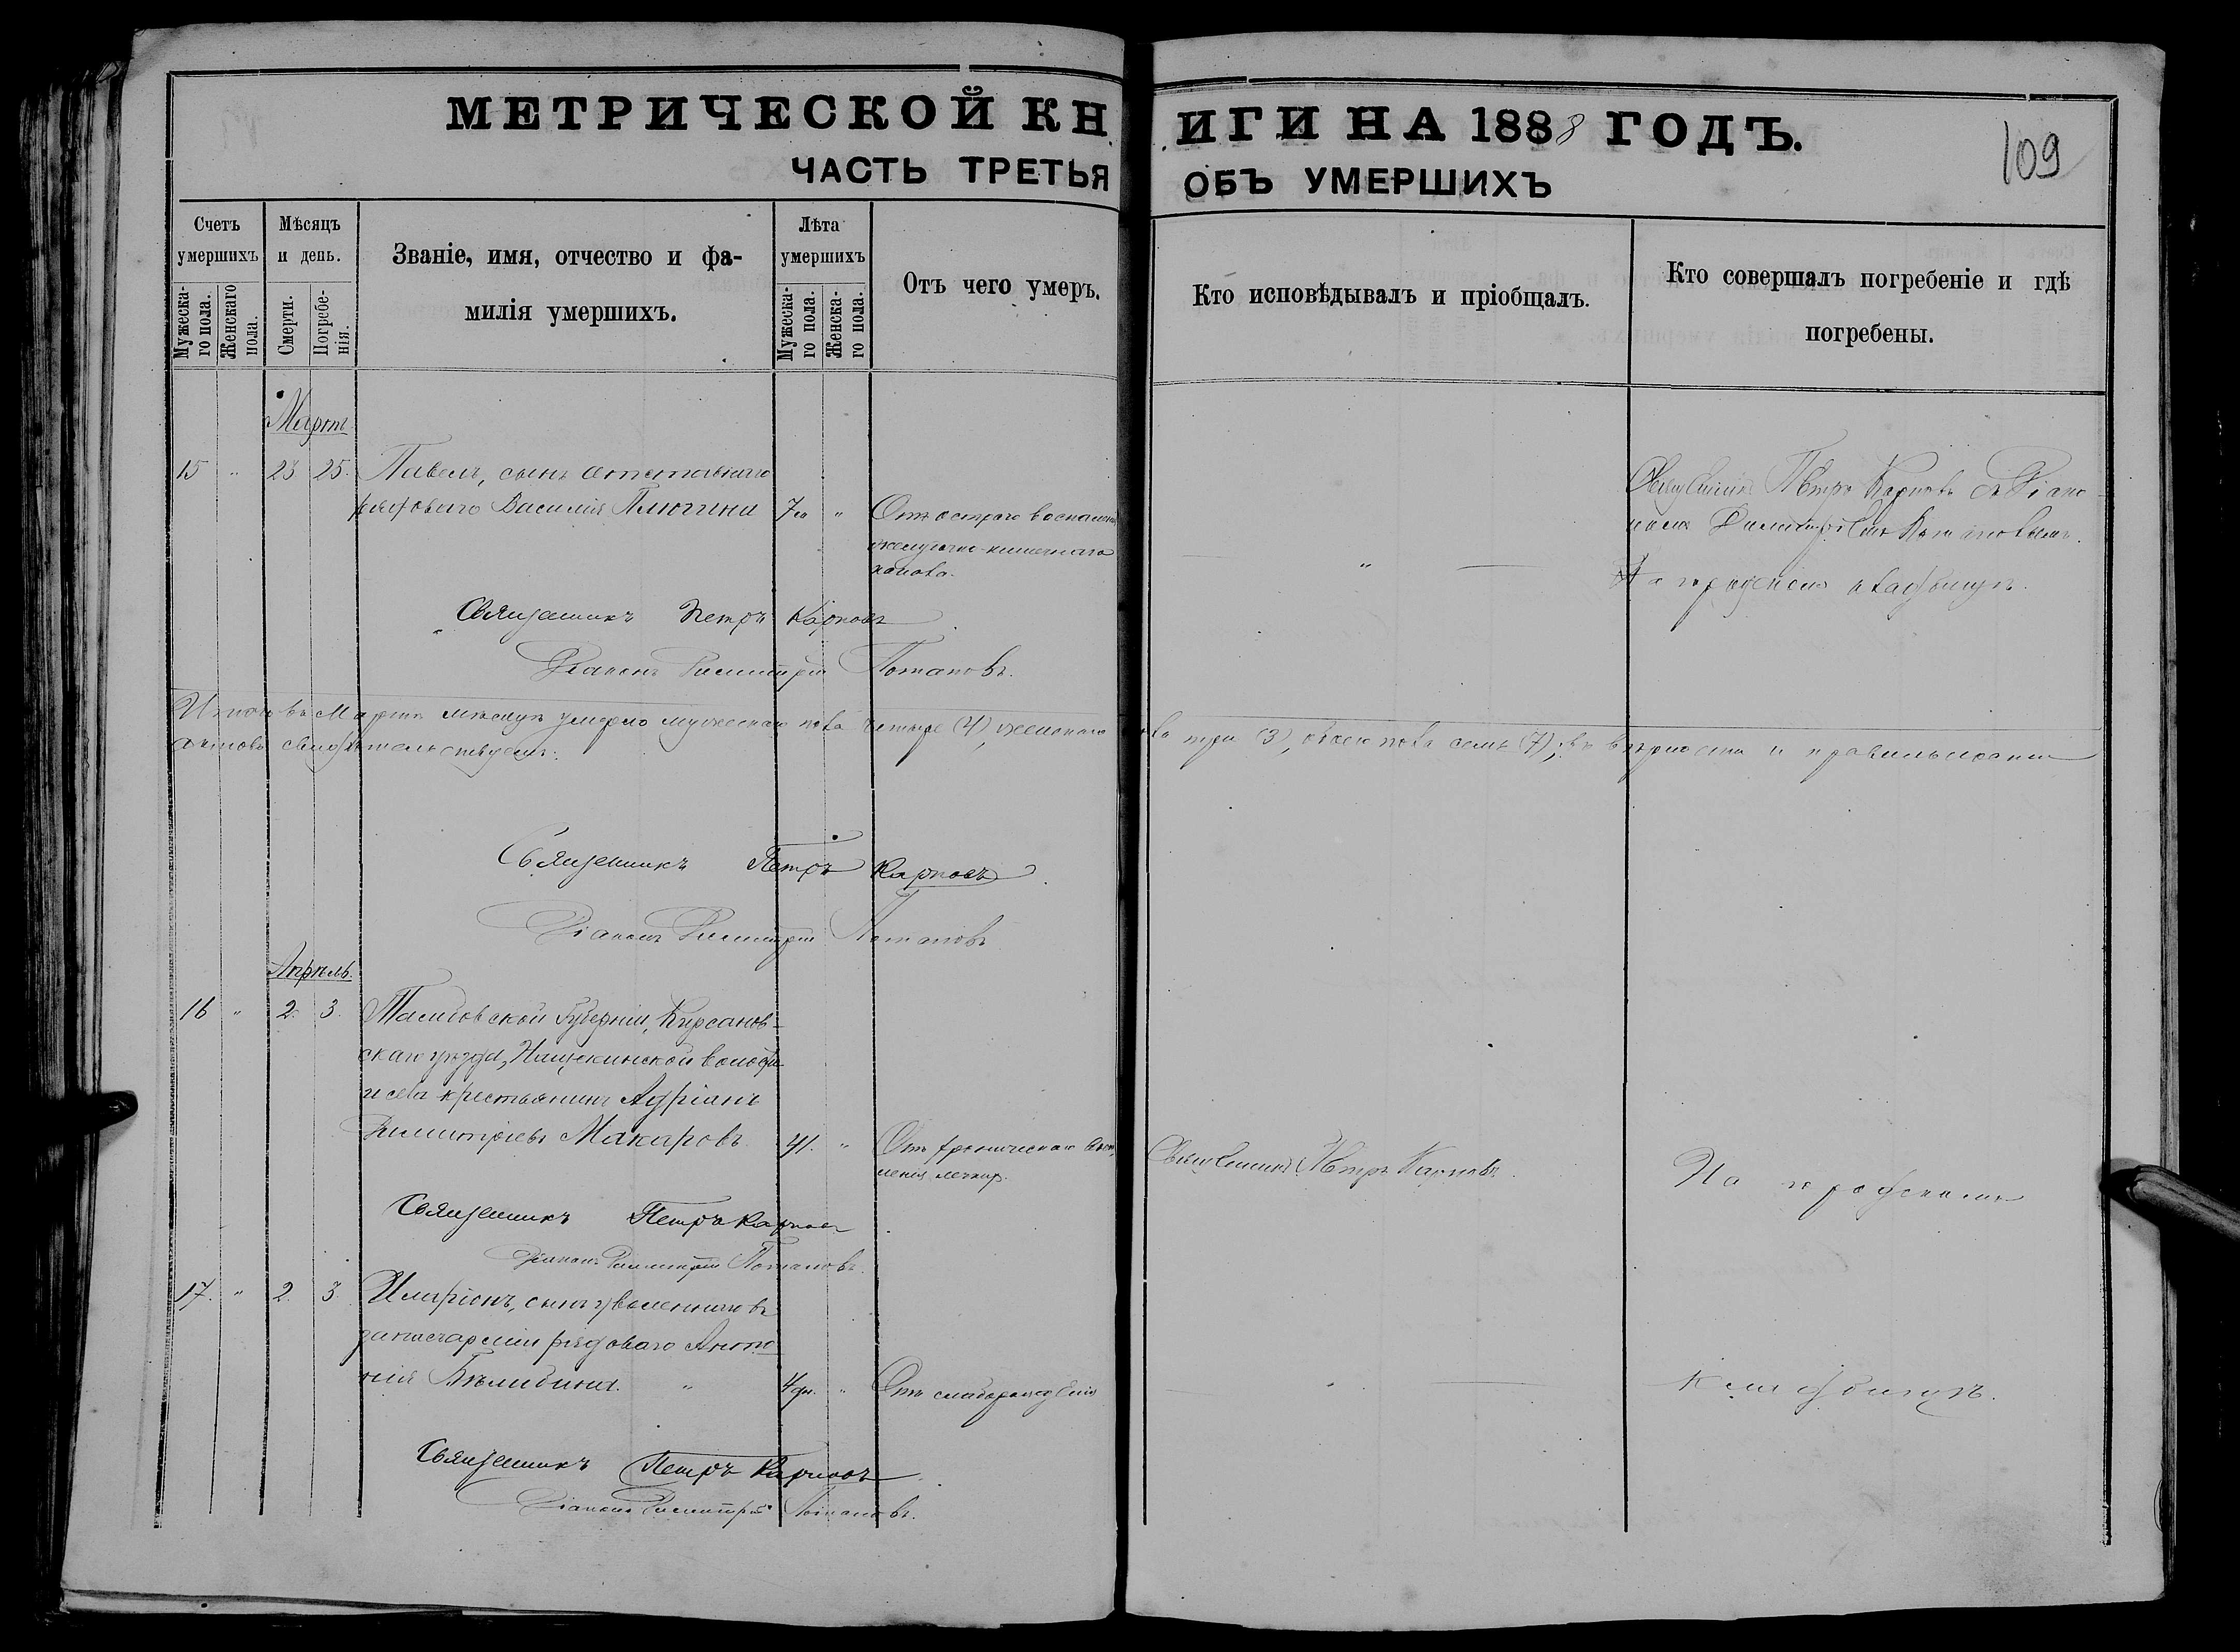 МЕТРИЧЕСКОЙ КНИГИ НА 1888 ГОДЪ.
109
ЧАСТЬ ТРЕТЬЯ ОБЪ УМЕРШИХЪ
Счетъ умершихъ
Мужеска-
го пола.
Женскаго
пола.
Мѣсяцъ
и день.
Смерти.
Погребе-
нія.
Званіе, имя, отчество и фа-
милія умершихъ.
Лѣта
умершихъ
Мужеска-
го пола.
Женска-
го пола.
Отъ чего умеръ.
Кто исповѣдывалъ и пріобщалъ.
Кто совершалъ погребеніе и гдѣ
погребены.
Мартъ
15 " 23 25. Павелъ, сынъ отставнаго
рядоваго Василія 7 " Отъ остраго воспаленія
желудочно-кишечнаго
канала.
Священникъ Петръ Карповъ съ Діако-
номъ Димитріемъ Потаповымъ.
На городскомъ кладбищѣ.
Священникъ Петръ Карповъ
Діаконъ Димитрій Потаповъ.
Итого въ Мартѣ мѣсяцѣ умерло мужескаго пола четыре (4), женскаго пола три (3), обоего пола семь (7); въ вѣрности и правильности
актовъ свидѣтельствуемъ:
Священникъ Петръ Карповъ.
Діаконъ Димитрій Потаповъ
Апрѣль.
16 " 2. 3. Тамбовской Губерніи, Кирсанов-
скаго уѣзда, волости
и села крестьянинъ Адріанъ
Димитріевъ Макаровъ 41. " Отъ хроническаго воспа-
ленія легкихъ.
Священникъ Петръ Карповъ.
На городскомъ
Священникъ Петръ Карповъ
Діаконъ Димитрій Потаповъ.
17. " 2. 3. Иларіонъ, сынъ уволеннаго въ
запасъ арміи рядоваго Анто-
нія " 4 дн. " Отъ слаборожденія
" кладбищѣ.
Священникъ Петръ Карповъ
Діаконъ Димитрій Потаповъ.